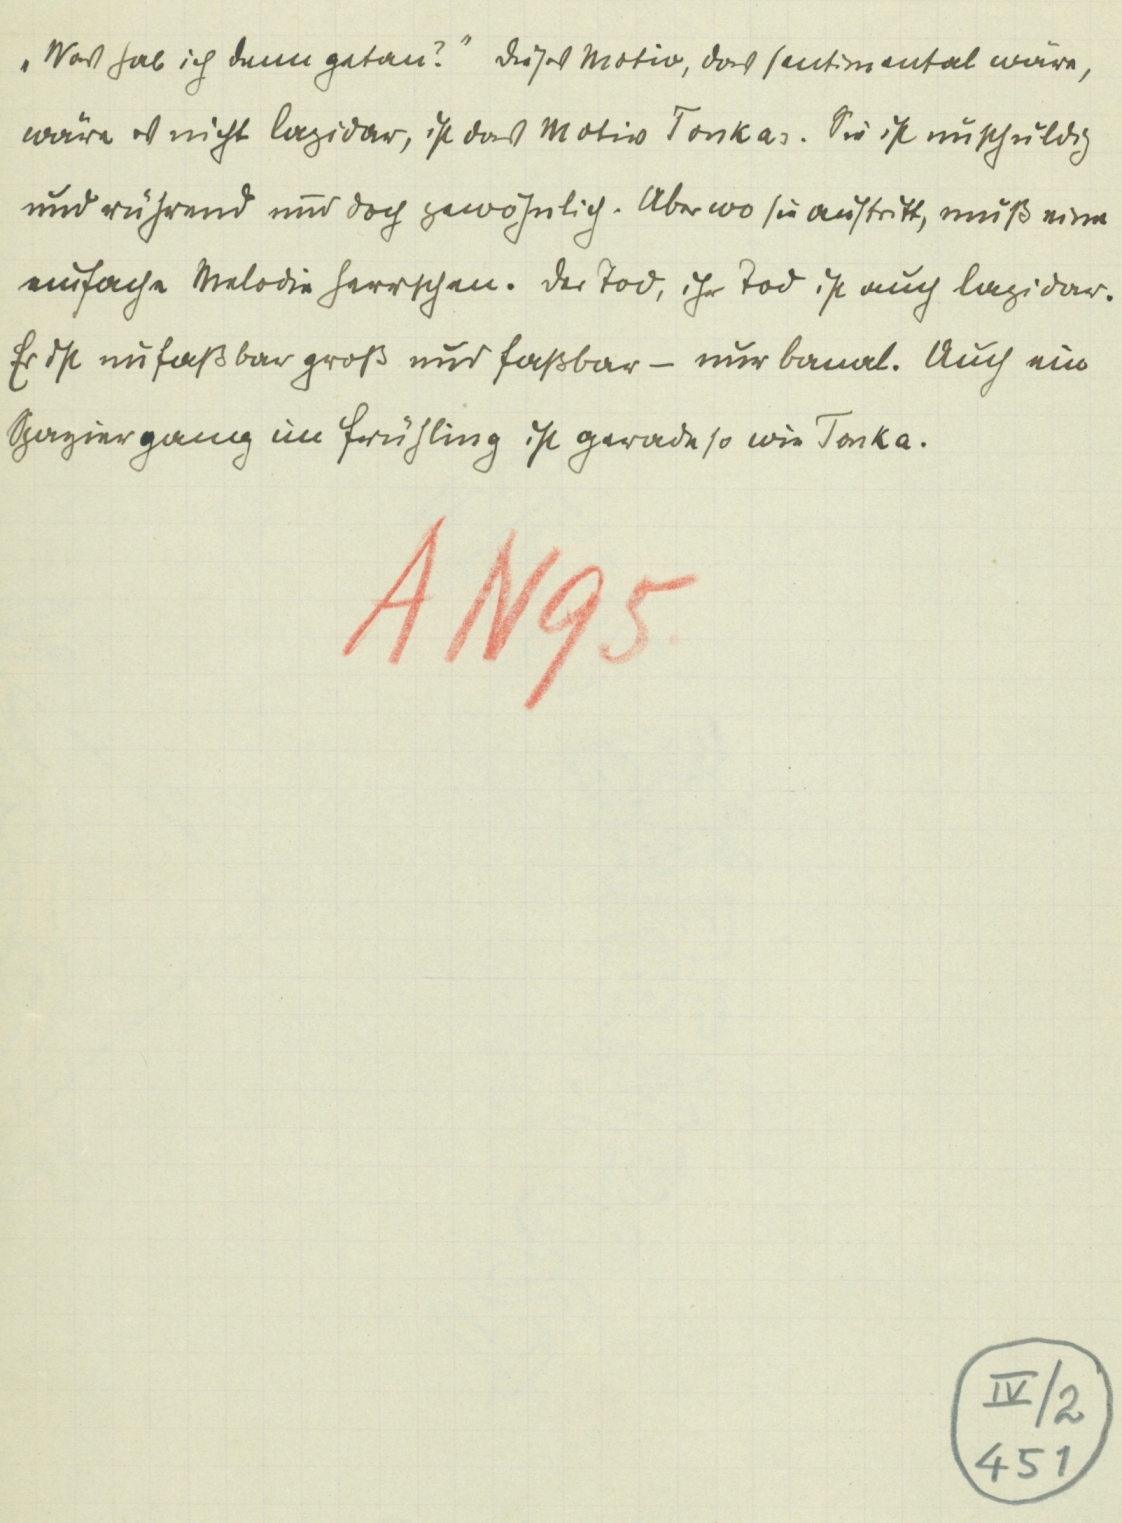 „Was hab ich denn getan?" Dieses Motiv, das sentimental wäre,
wäre es nicht lapidar, ist das Motiv Tonkas. Sie ist unschuldig
und rührend und doch gewöhnlich. Aber wo sie auftritt, muß eine
einfache Melodie herrschen. Der Tod, ihr Tod ist auch lapidar.
Er ist unfaßbar groß und faßbar – nur banal. Auch ein
Spaziergang im Frühling ist geradeso wie Tonka.
AN95.
IV/2
451